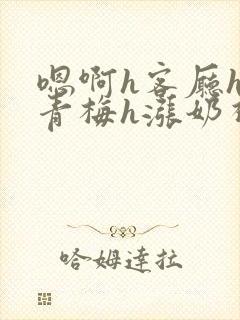 嗯啊h客厅h
青梅h涨奶
哈姆達拉